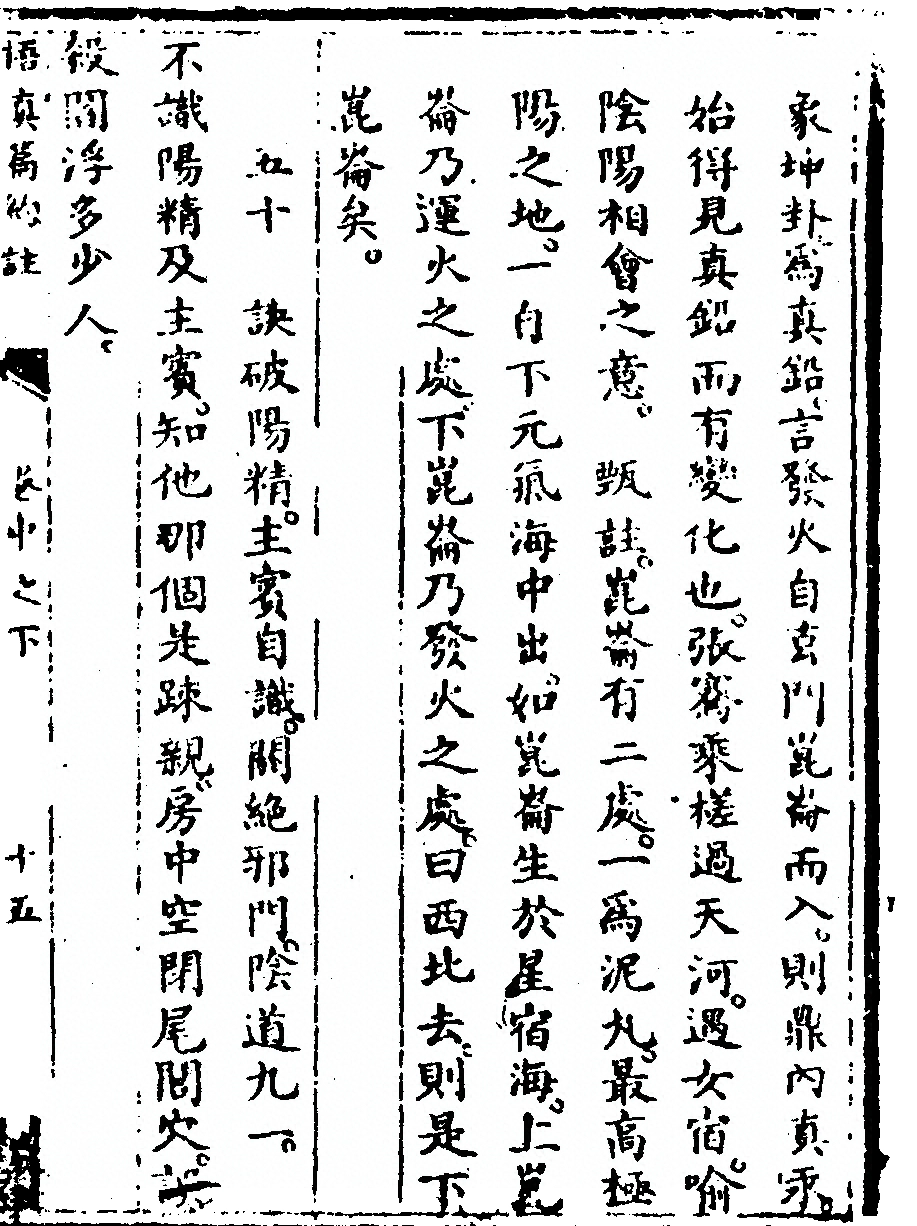 象坤卦爲真鉛言發火自玄門崑崙而入則鼎內真汞
始得見真鉛而有變化也張騫乘槎過天河遇女宿喻
陰陽相會之意。甄註崑崙有二處。一爲泥丸最高極
陽之地。一自下元氣海中出如崑崙生於星宿海。上崑
崙乃運火之處下崑崙乃發火之處曰西北去則是下
崑崙矣。
五十 訣破陽精。主賓自識。關絕邪門陰道九一。
不識陽精及主賓。知他那個是疎親房中空閉尾閭穴。誤
殺閻浮多少人
悟真篇約註 卷中之下 十五